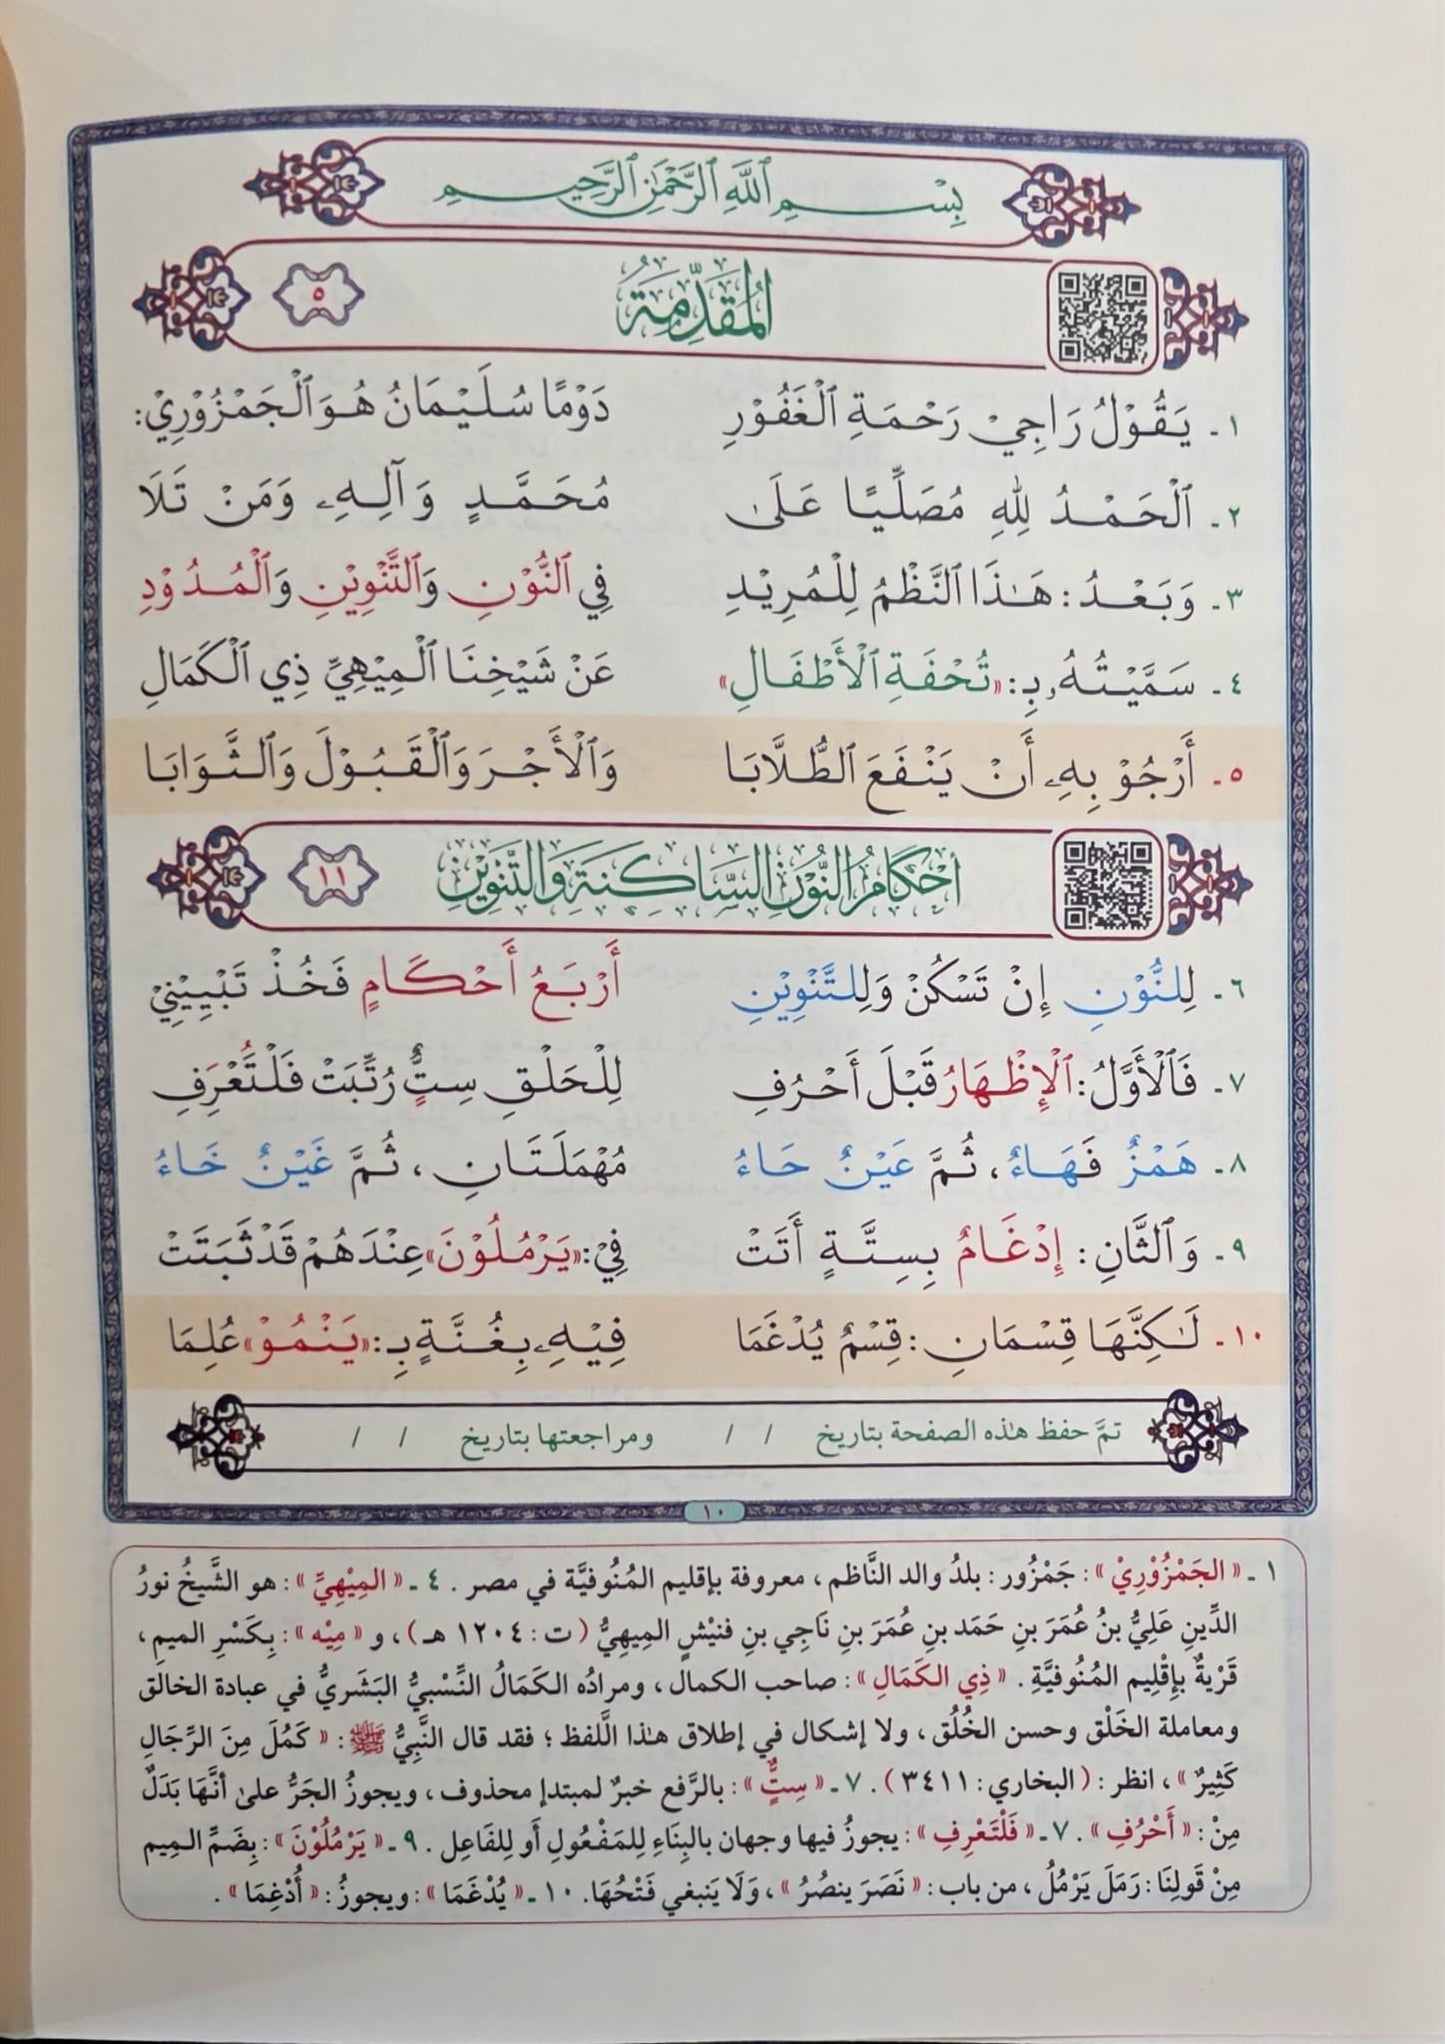 بِسْمِ ٱللَّهِ ٱلرَّحْمَٰنِ ٱلرَّحِيمِ
المُقَدِّمَةُ ٥
١ - يَقُوْلُ رَاجِيْ رَحْمَةِ ٱلْغَفُوْرِ دَوْمًا سُلَيْمَانُ هُوَ ٱلْجَمْزُوْرِيْ:
٢ - ٱلْحَمْدُ لِلهِ مُصَلِّيًا عَلَىٰ مُحَمَّدٍ وَآلِهِۦ وَمَنْ تَلَا
٣ - وَبَعْدُ: هَٰذَا ٱلنَّظْمُ لِلْمُرِيْدِ فِي ٱلنُّوْنِ وَٱلتَّنْوِيْنِ وَٱلْمُدُوْدِ
٤ - سَمَّيْتُهُۥ بِـ: «تُحْفَةِ ٱلْأَطْفَالِ» عَنْ شَيْخِنَا ٱلْمِيْهِيِّ ذِي ٱلْكَمَالِ
٥ - أَرْجُوْ بِهِۦ أَنْ يَنْفَعَ ٱلطُّلَّابَا وَٱلْأَجْرَ وَٱلْقَبُوْلَ وَٱلثَّوَابَا
أَحْكَامُ النُّوْنِ السَّاكِنَةِ وَالتَّنْوِيْنِ ١١
٦ - لِلنُّوْنِ إِنْ تَسْكُنْ وَلِلتَّنْوِيْنِ أَرْبَعُ أَحْكَامٍ فَخُذْ تَبْيِيْنِيْ
٧ - فَٱلْأَوَّلُ: ٱلْإِظْهَارُ قَبْلَ أَحْرُفِ لِلْحَلْقِ سِتٌّ رُتِّبَتْ فَلْتُعْرَفِ
٨ - هَمْزٌ فَهَاءٌ، ثُمَّ عَيْنٌ حَاءُ مُهْمَلَتَانِ، ثُمَّ غَيْنٌ خَاءُ
٩ - وَٱلثَّانِ: إِدْغَامٌ بِسِتَّةٍ أَتَتْ فِيْ: «يَرْمُلُوْنَ» عِنْدَهُمْ قَدْ ثَبَتَتْ
١٠ - لَٰكِنَّهَا قِسْمَانِ: قِسْمٌ يُدْغَمَا فِيْهِۦ بِغُنَّةٍ بِـ: «يَنْمُوْ» عُلِمَا
تمَّ حفظ هٰذه الصفحة بتاريخ / / ومراجعتها بتاريخ / /
١٠
١ - «الجَمْزُوْرِيْ»: جَمْزُور: بلدُ والد النَّاظم، معروفة بإقليم المُنُوفيَّة في مصر. ٤ - «المِيْهِيِّ»: هو الشَّيخُ نورُ
الدِّينِ عَلِيُّ بنُ عُمَرَ بنِ حَمَد بنِ عُمَرَ بنِ نَاجِي بنِ فنيْشٍ الميهِيُّ (ت: ١٢٠٤ هـ)، و«مِيْه»: بِكَسْرِ الميمِ،
قَرْيَةٌ بإِقْلِيم المُنُوفيَّةِ. «ذِي الكَمَالِ»: صاحب الكمال، ومرادُه الكَمَالُ النِّسْبيُّ البَشَريُّ في عبادة الخالق
ومعاملة الخَلْق وحسن الخُلُق، ولا إشكال في إطلاق هٰذا اللَّفظ؛ فقد قال النَّبِيُّ ﷺ: «كَمُلَ مِنَ الرِّجَالِ
كَثِيرٌ»، انظر: (البخاري: ٣٤١١). ٧ - «سِتٌّ»: بالرَّفع خبرٌ لمبتدإ محذوف، ويجوزُ الجَرُّ علىٰ أنَّهَا بَدَلٌ
مِنْ: «أَحْرُفِ». ٧ - «فَلْتَعْرِفِ»: يجوزُ فيها وجهان بالبِنَاءِ لِلمَفْعُولِ أَو لِلفَاعِل. ٩ - «يَرْمُلُوْنَ»: بِضَمِّ الميم
مِنْ قَولِنَا: رَمَلَ يَرْمُلُ، من باب: «نَصَرَ ينصُرُ»، وَلَا يَنبغي فَتْحُهَا. ١٠ - «يُدْغَمَا»: ويجوزُ: «أُدْغِمَا».